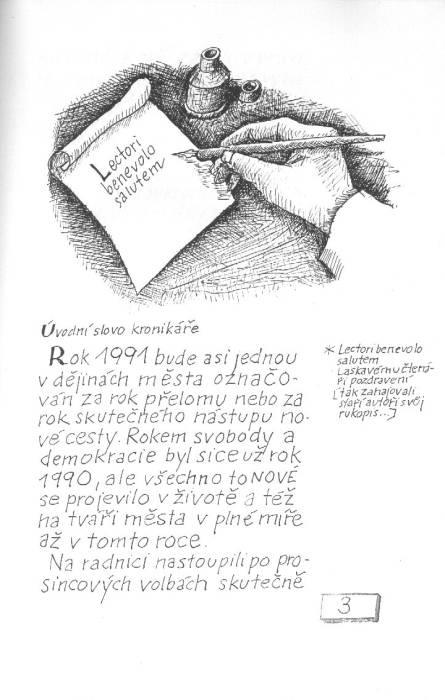 Lectori
benevolo
salutem
Úvodní slovo kronikáře
Rok 1991 bude asi jednou
v dějinách města označo-
ván za rok přelomu nebo za
rok skutečného nástupu no-
vé cesty. Rokem svobody a
demokracie byl sice už rok
1990, ale všechno to NOVÉ
se projevilo v životě a též
na tváři města v plné míře
až v tomto roce.
Na radnici nastoupili po pro-
sincových volbách skutečně
* Lectori benevolo
salutem
Laskavému čtená-
ři pozdravení
[tak zahajovali
staří autoři svůj
rukopis...]
3